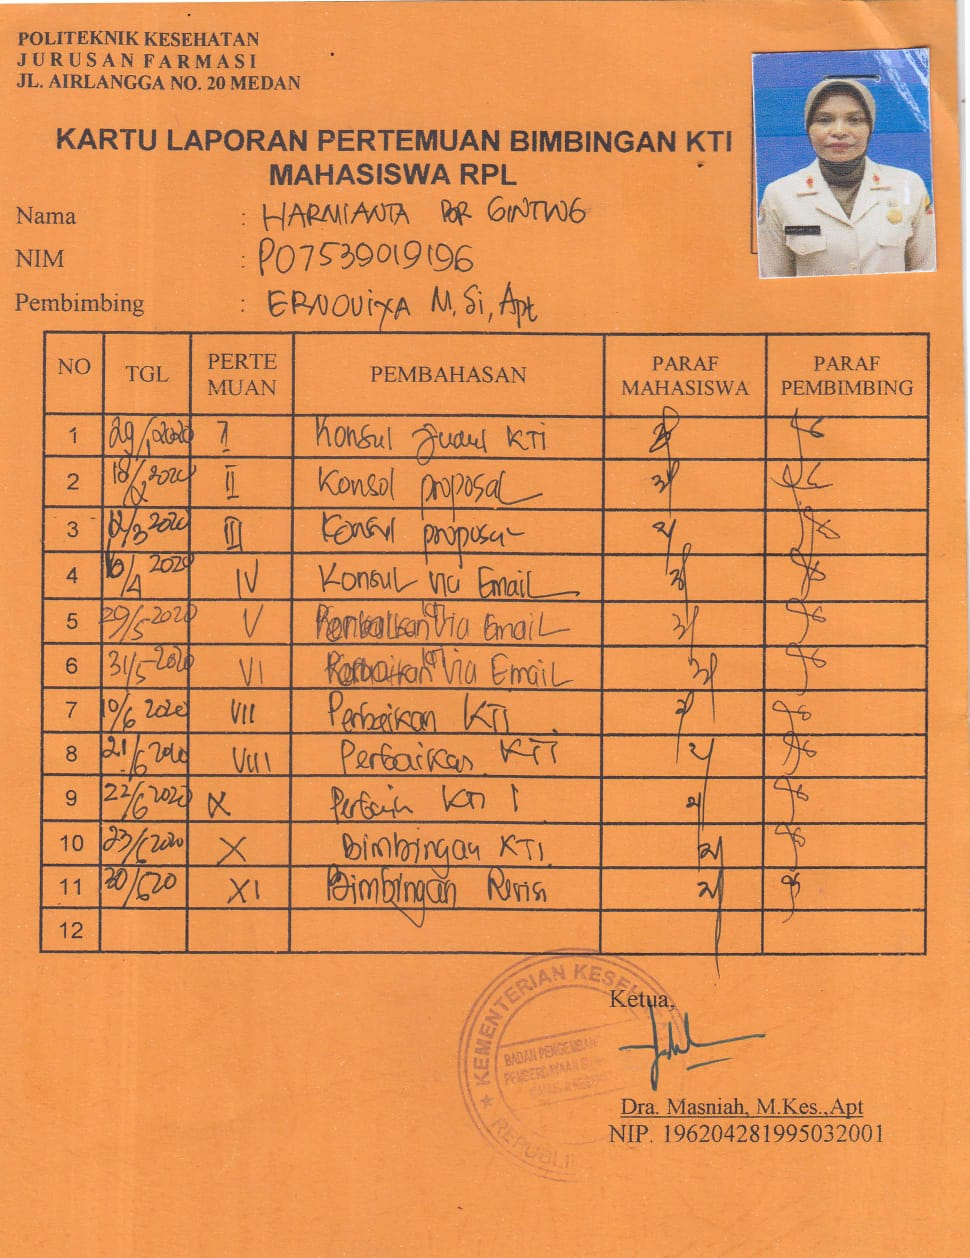 POLITEKNIK KESEHATAN
JURUSAN FARMASI
JL. AIRLANGGA NO. 20 MEDAN
KARTU LAPORAN PERTEMUAN BIMBINGAN KTI
MAHASISWA RPL
Nama : HARMIANTA BR GINTING
NIM : P07539019196
Pembimbing : ERNOVIXA M.Si, Apt
NO TGL PERTE MUAN PEMBAHASAN PARAF MAHASISWA PARAF PEMBIMBING
1 29/1 2020 I Konsul Judul KTI
2 18/2 2020 II Konsul proposal
3 12/3 2020 III Konsul proposal
4 16/4 2020 IV Konsul via Email
5 29/5 2020 V Via Email
6 31/5-2020 VI Via Email
7 10/6 2020 VII Perbaikan KTI
8 21/6 2020 VIII Perbaikan KTI
9 22/6 2020 IX KTI
10 23/6 2020 X Bimbingan KTI
11 30/6 20 XI Bimbingan Revisi
12
KEMENTERIAN
BADAN
REPUBLIK
Ketua,
Dra. Masniah, M.Kes.,Apt
NIP. 196204281995032001